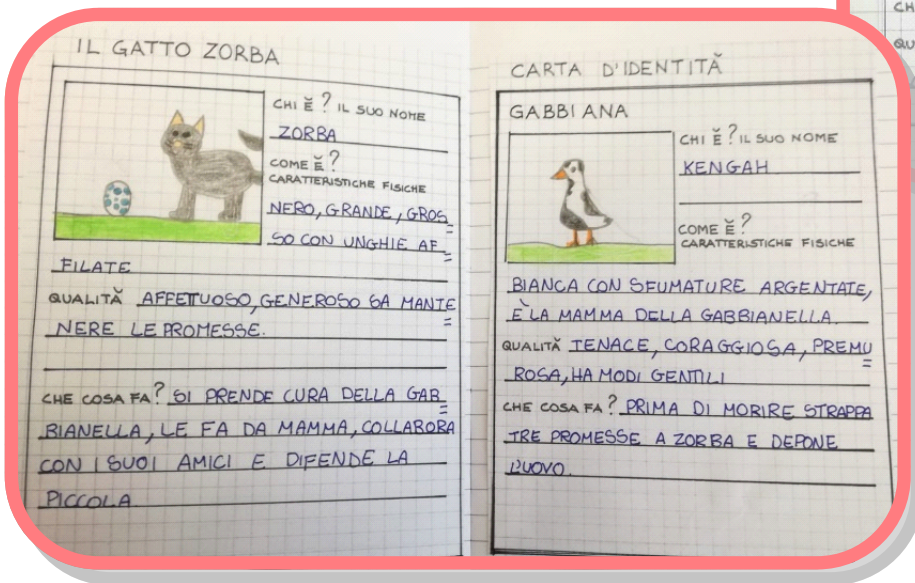 IL GATTO ZORBA
CHI È? IL SUO NOME
ZORBA
COME È?
CARATTERISTICHE FISICHE
NERO, GRANDE, GROS
SO CON UNGHIE AF
FILATE
QUALITÀ AFFETTUOSO, GENEROSO SA MANTE
NERE LE PROMESSE.
CHE COSA FA? SI PRENDE CURA DELLA GAB
BIANELLA, LE FA DA MAMMA, COLLABORA
CON I SUOI AMICI E DIFENDE LA
PICCOLA
CARTA D'IDENTITÀ
GABBIANA
CHI È? IL SUO NOME
KENGAH
COME È?
CARATTERISTICHE FISICHE
BIANCA CON SFUMATURE ARGENTATE,
È LA MAMMA DELLA GABBIANELLA.
QUALITÀ TENACE, CORAGGIOSA, PREMU
ROSA, HA MODI GENTILI
CHE COSA FA? PRIMA DI MORIRE STRAPPA
TRE PROMESSE A ZORBA E DEPONE
L'UOVO.
CH
QU